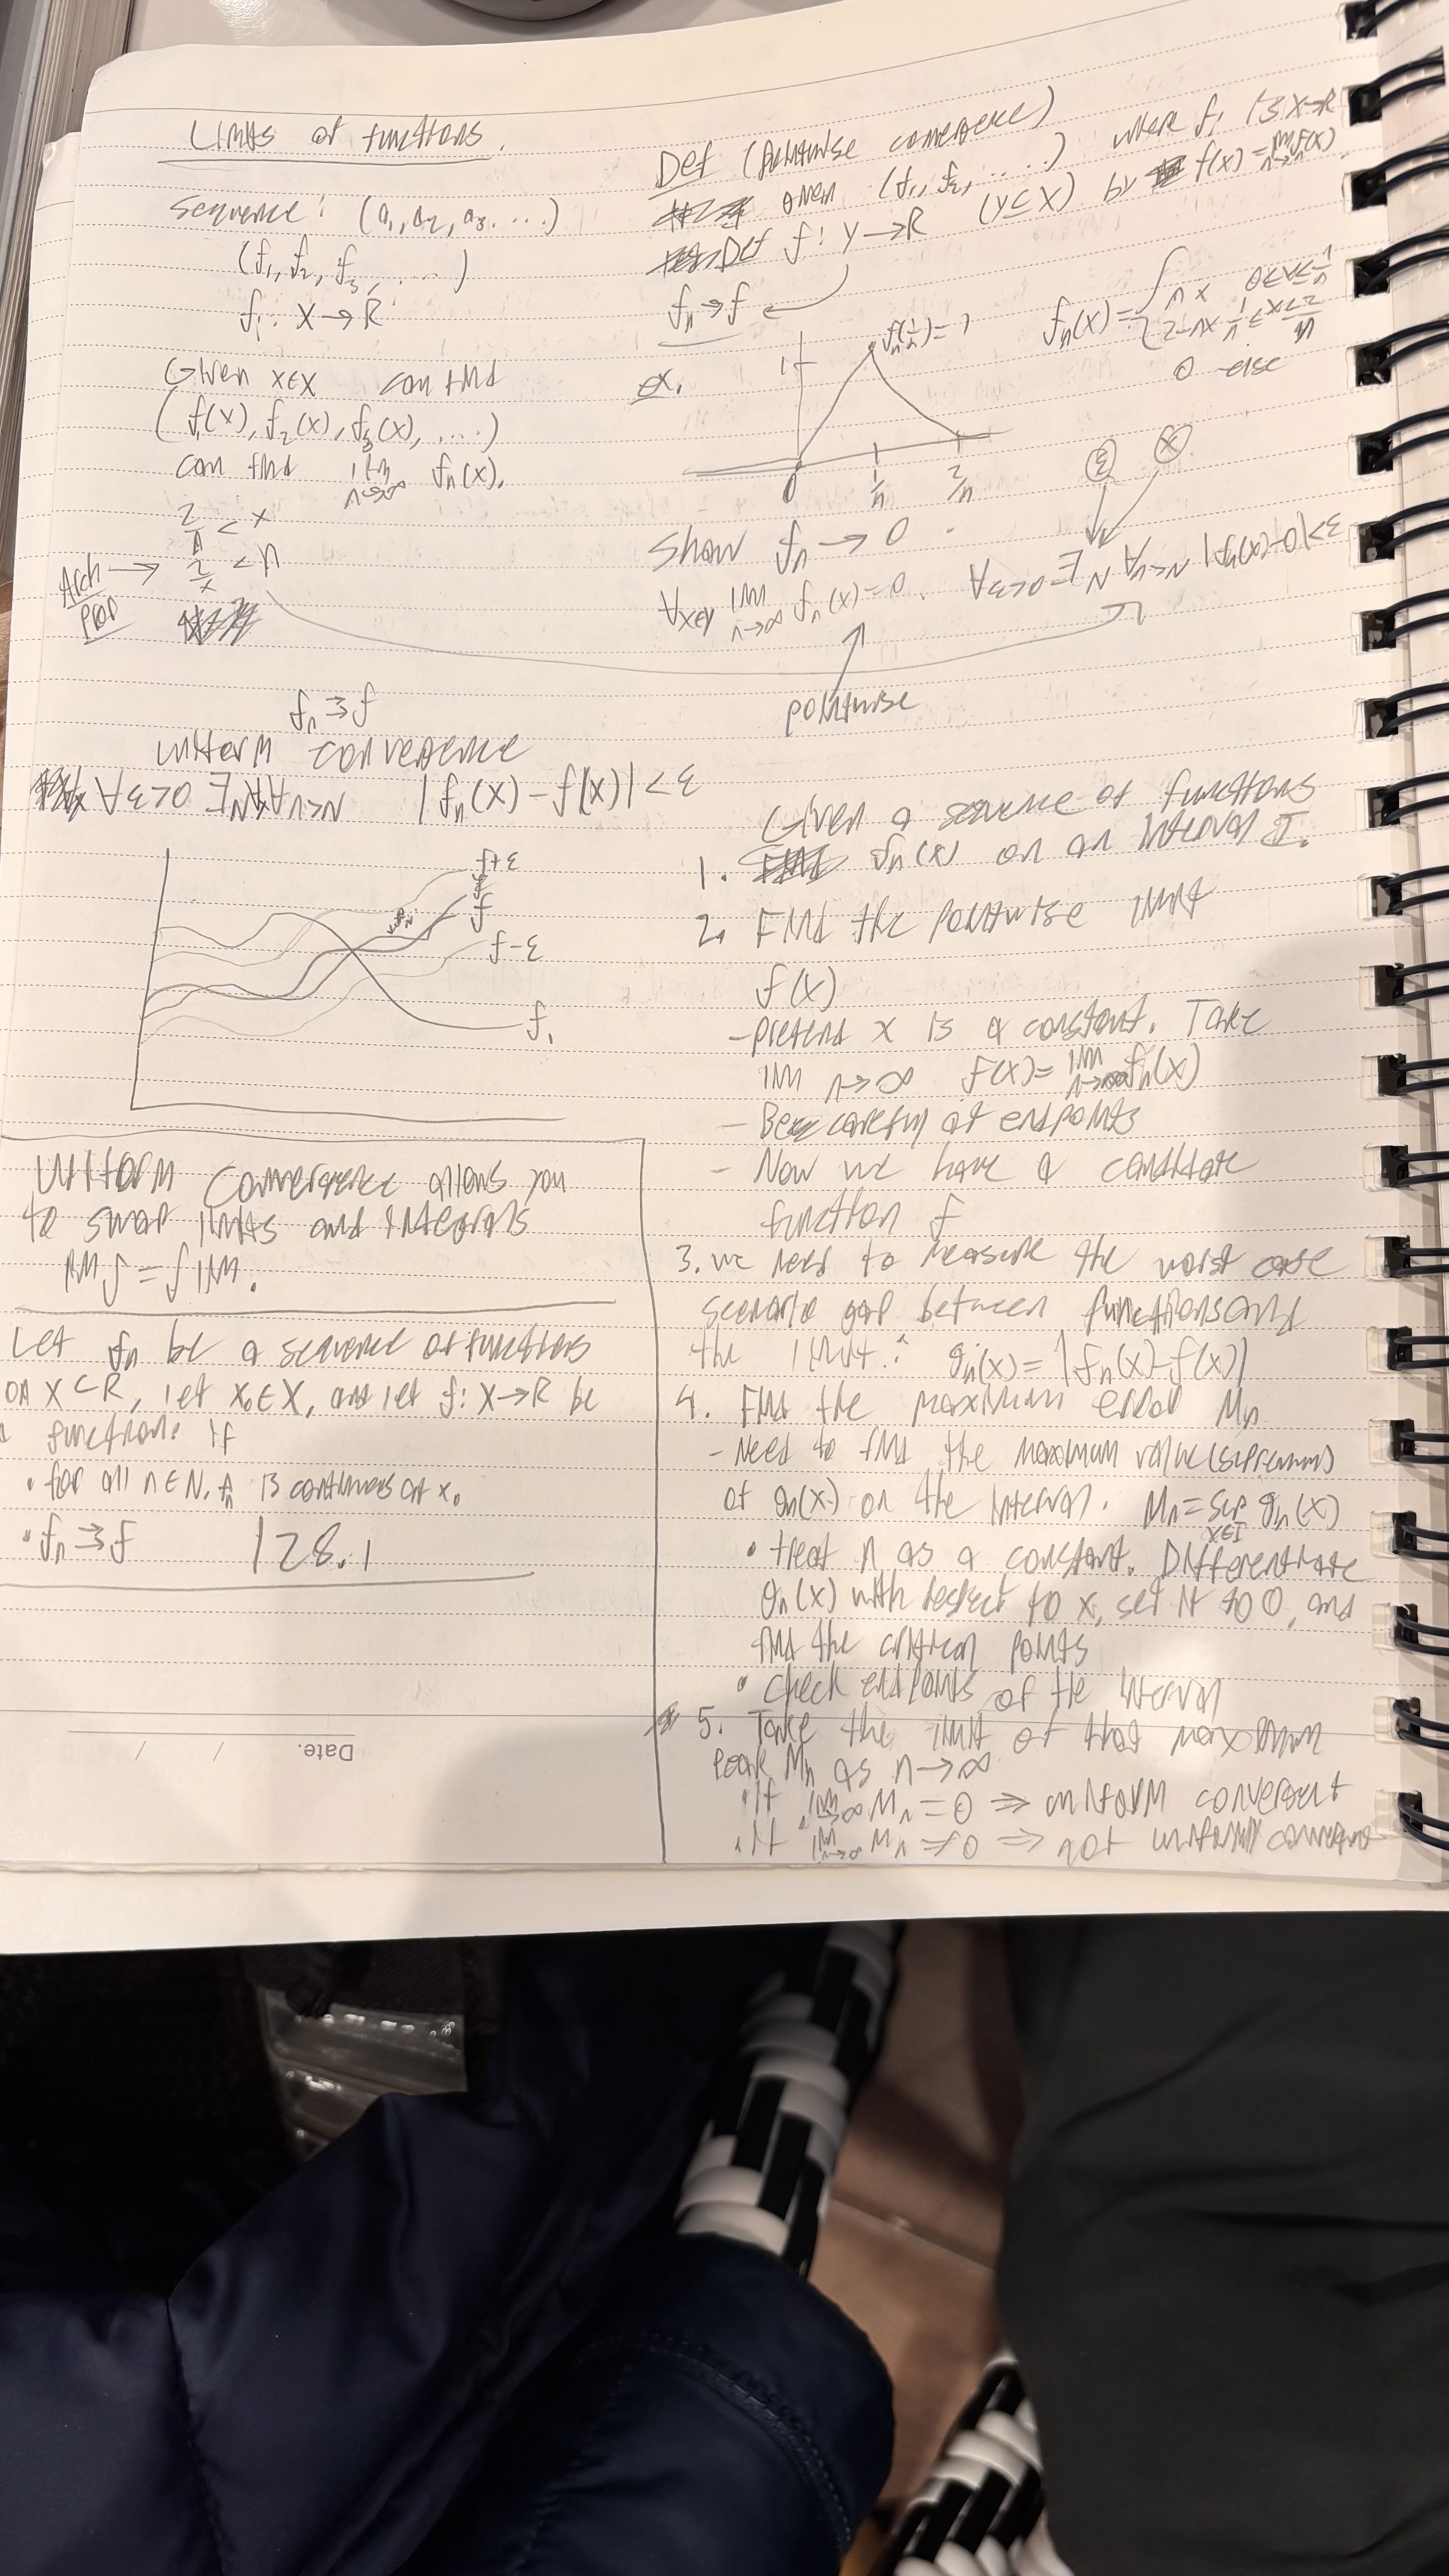 Limits of functions.
Sequence: (a₁, a₂, a₃, ...)
(f₁, f₂, f₃, ....)
f₁: X→R
Given x∈X can find
(f₁(x), f₂(x), f₃(x), ....)
can find lim n→∞ fₙ(x).
2/n < x
Arch prop → 2/x < n
Def (pointwise convergence)
given (f₁, f₂, ....) where f₁ is X→R
Def f: Y→R (Y⊆X) by f(x) = lim n→∞ f(x)
fₙ→f
ex.
1
fₙ(1/n)=1
0 1/n 2/n
fₙ(x)= { xn 1/n≥x≥0
2-nx 2/n≥x≥1/n
0 else
ε x
Show fₙ→0
∀x∈Y lim n→∞ fₙ(x)=0. ∀ε>0 ∃N ∀n>N |fₙ(x)-0|<ε
pointwise
fₙ⇉f
uniform convergence
∀ε>0 ∃N ∀x ∀n>N |fₙ(x)-f(x)|<ε
f+ε
f
f-ε
f₁
Uniform convergence allows you
to swap limits and integrals
lim ∫ = ∫ lim.
Let fₙ be a sequence of functions
on X⊂R, let x₀∈X, and let f: X→R be
a function. If
• for all n∈N, fₙ is continuous at x₀
• fₙ⇉f 128.1
Given a sequence of functions
1. fₙ(x) on an interval I.
2. Find the pointwise limit
f(x)
- pretend x is a constant. Take
lim n→∞ f(x) = lim n→∞ fₙ(x)
- Be careful at endpoints
- Now we have a candidate
function f
3. we need to measure the worst case
scenario gap between functions and
the limit: gₙ(x)=|fₙ(x)-f(x)|
4. Find the maximum error Mₙ
- Need to find the maximum value (supremum)
of gₙ(x) on the interval. Mₙ = sup x∈I gₙ(x)
• treat n as a constant. Differentiate
gₙ(x) with respect to x, set it to 0, and
find the critical points
• check endpoints of the interval
5. Take the limit of that maximum
peak Mₙ as n→∞
• if lim n→∞ Mₙ = 0 ⇒ uniform convergent
• if lim n→∞ Mₙ ≠ 0 ⇒ not uniformly convergent
Date. / /